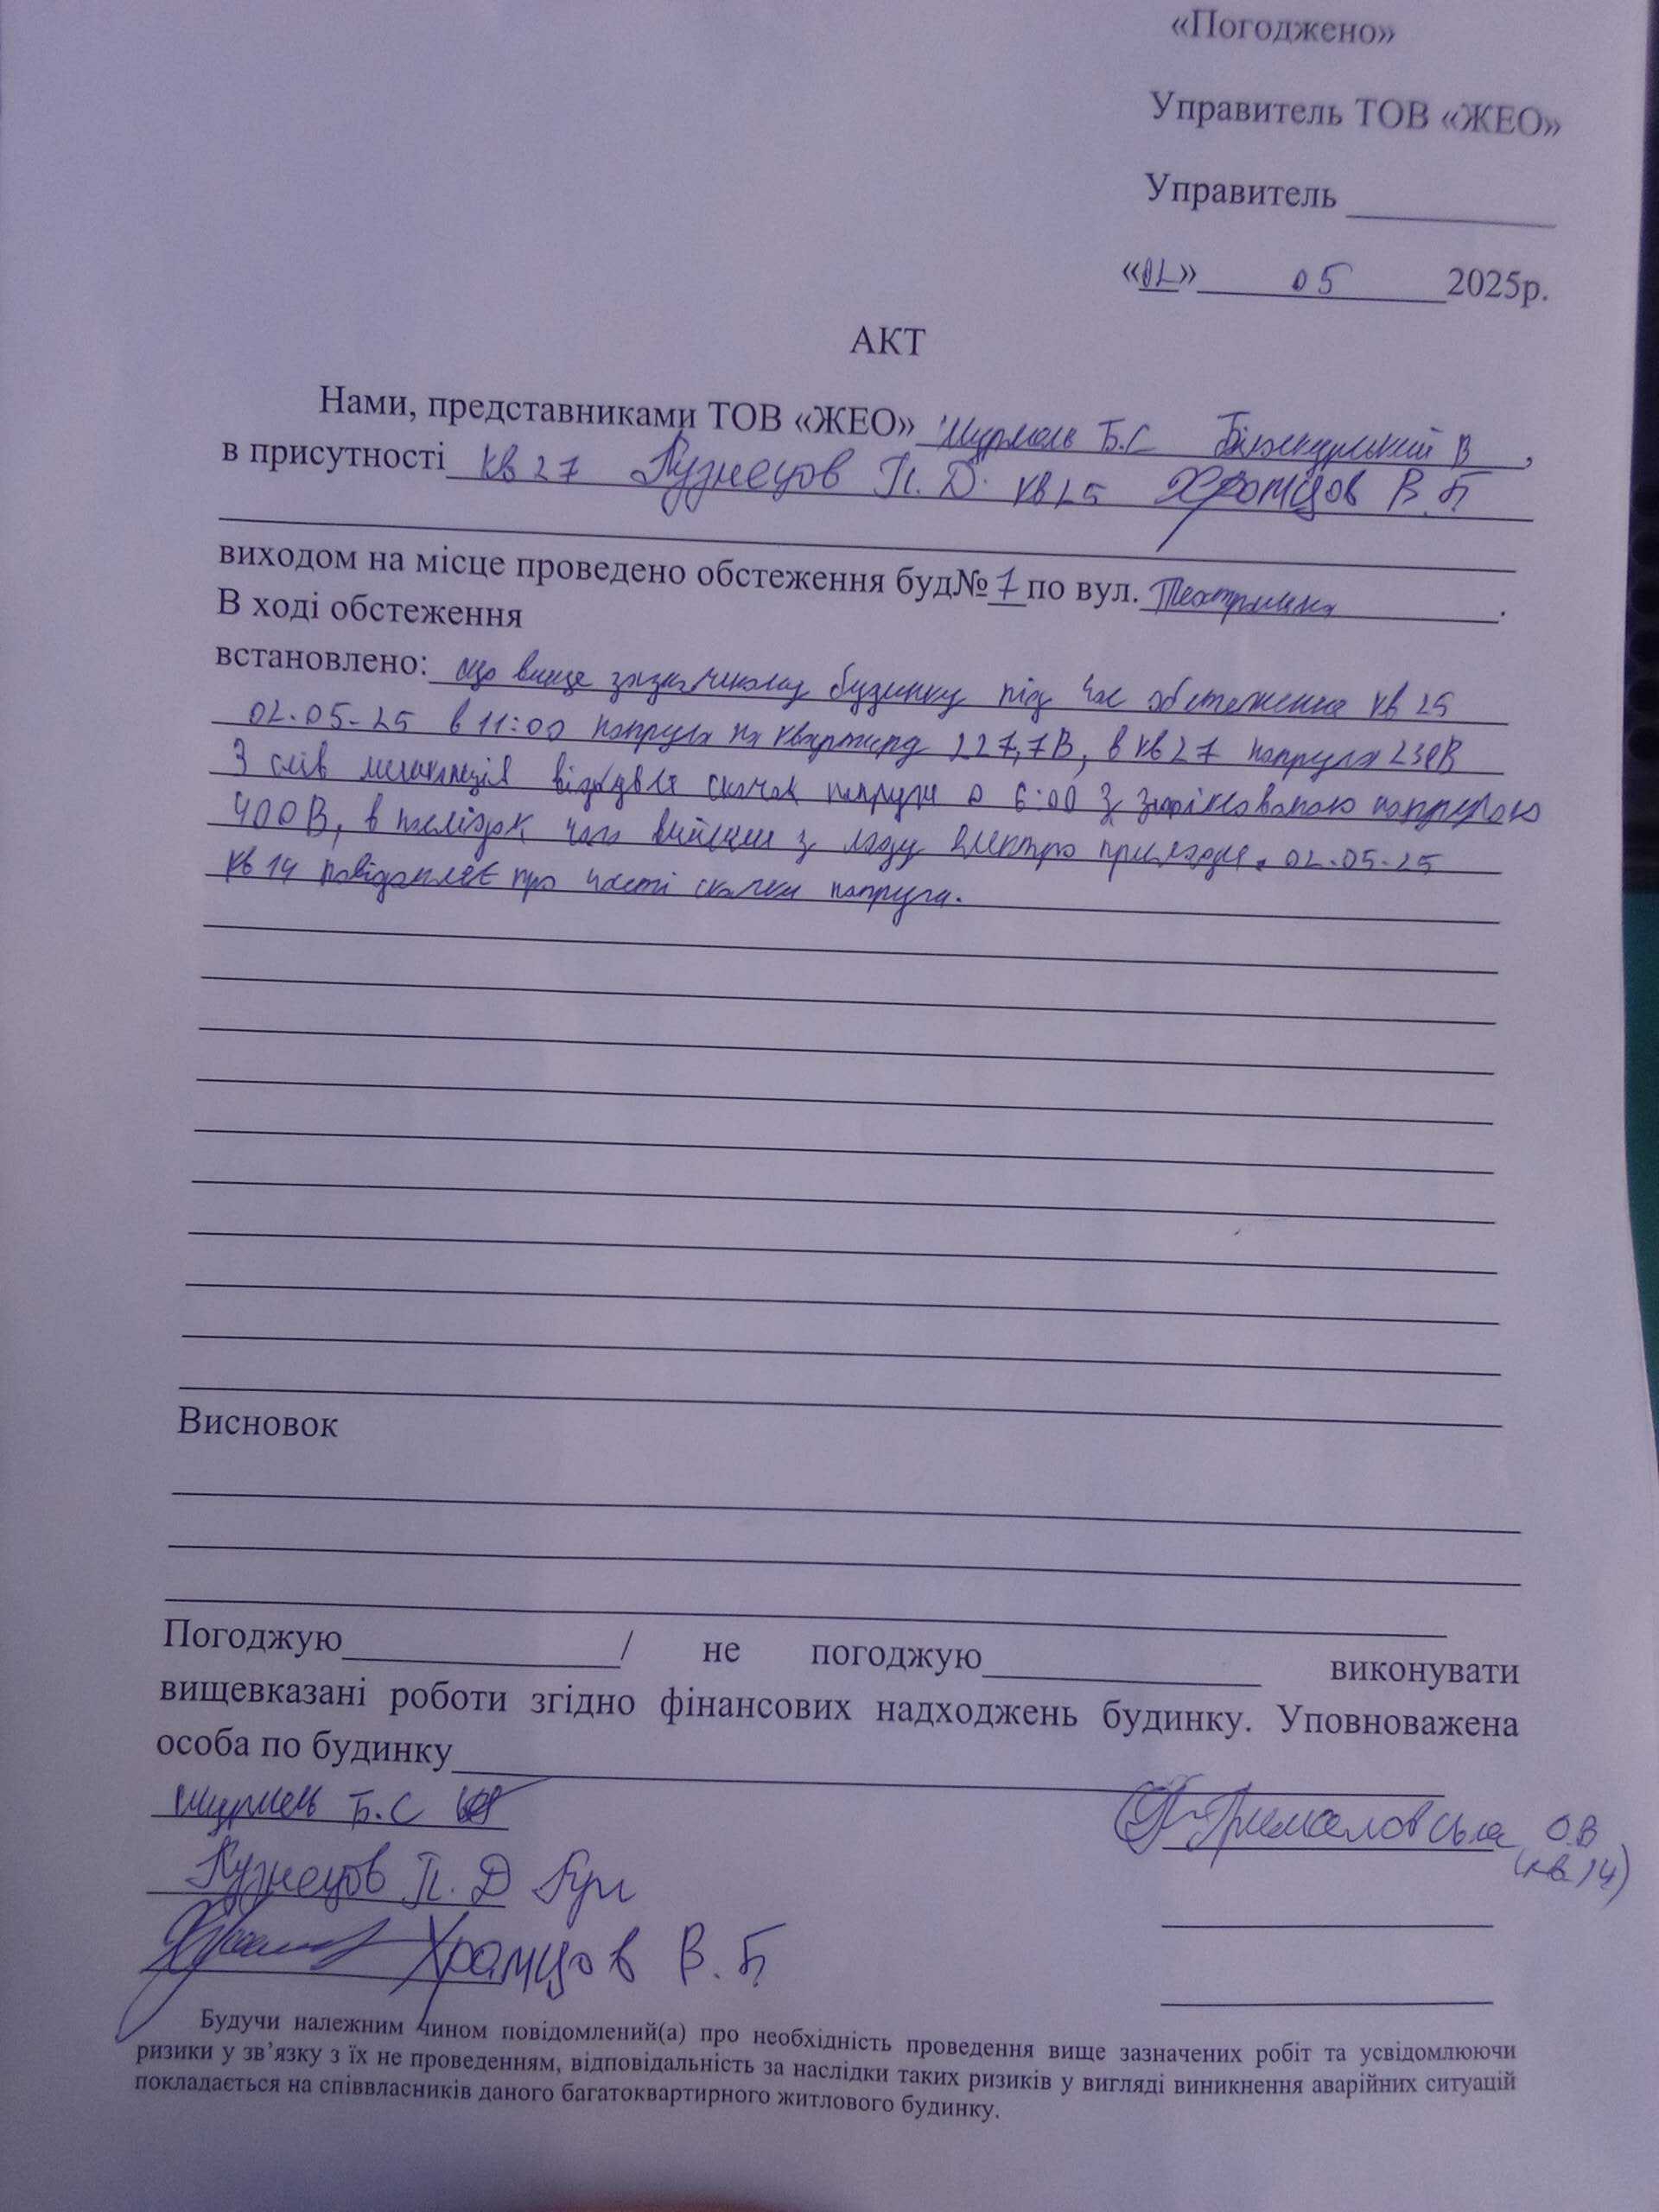 «Погоджено»
Управитель ТОВ «ЖЕО»
Управитель
«02» 05 2025р.
АКТ
Нами, представниками ТОВ «ЖЕО» Б.С В ,
в присутності кв 27 Кузнецов П.Д. кв 25 Храмцов В.Б
виходом на місце проведено обстеження буд№ 1 по вул. Театральна .
В ході обстеження
встановлено: що вище зазначеному будинку під час обстеження кв 25
02.05-25 в 11:00 напруга на квартиру 227,7В, в кв 27 напруга 230В
З слів мешканців відбувся скачок напруги о 6:00 З зафіксованою напругою
400В, в наслідок чого вийшли з ладу електро прилади. 02.05-25
кв 14 повідомляє про часті скачки напруги.
Висновок
Погоджую / не погоджую виконувати
вищевказані роботи згідно фінансових надходжень будинку. Уповноважена
особа по будинку
Б.С
Прималовська О.В
(кв. 14)
Кузнецов П.Д
Храмцов В.Б
Будучи належним чином повідомлений(а) про необхідність проведення вище зазначених робіт та усвідомлюючи
ризики у зв’язку з їх не проведенням, відповідальність за наслідки таких ризиків у вигляді виникнення аварійних ситуацій
покладається на співвласників даного багатоквартирного житлового будинку.